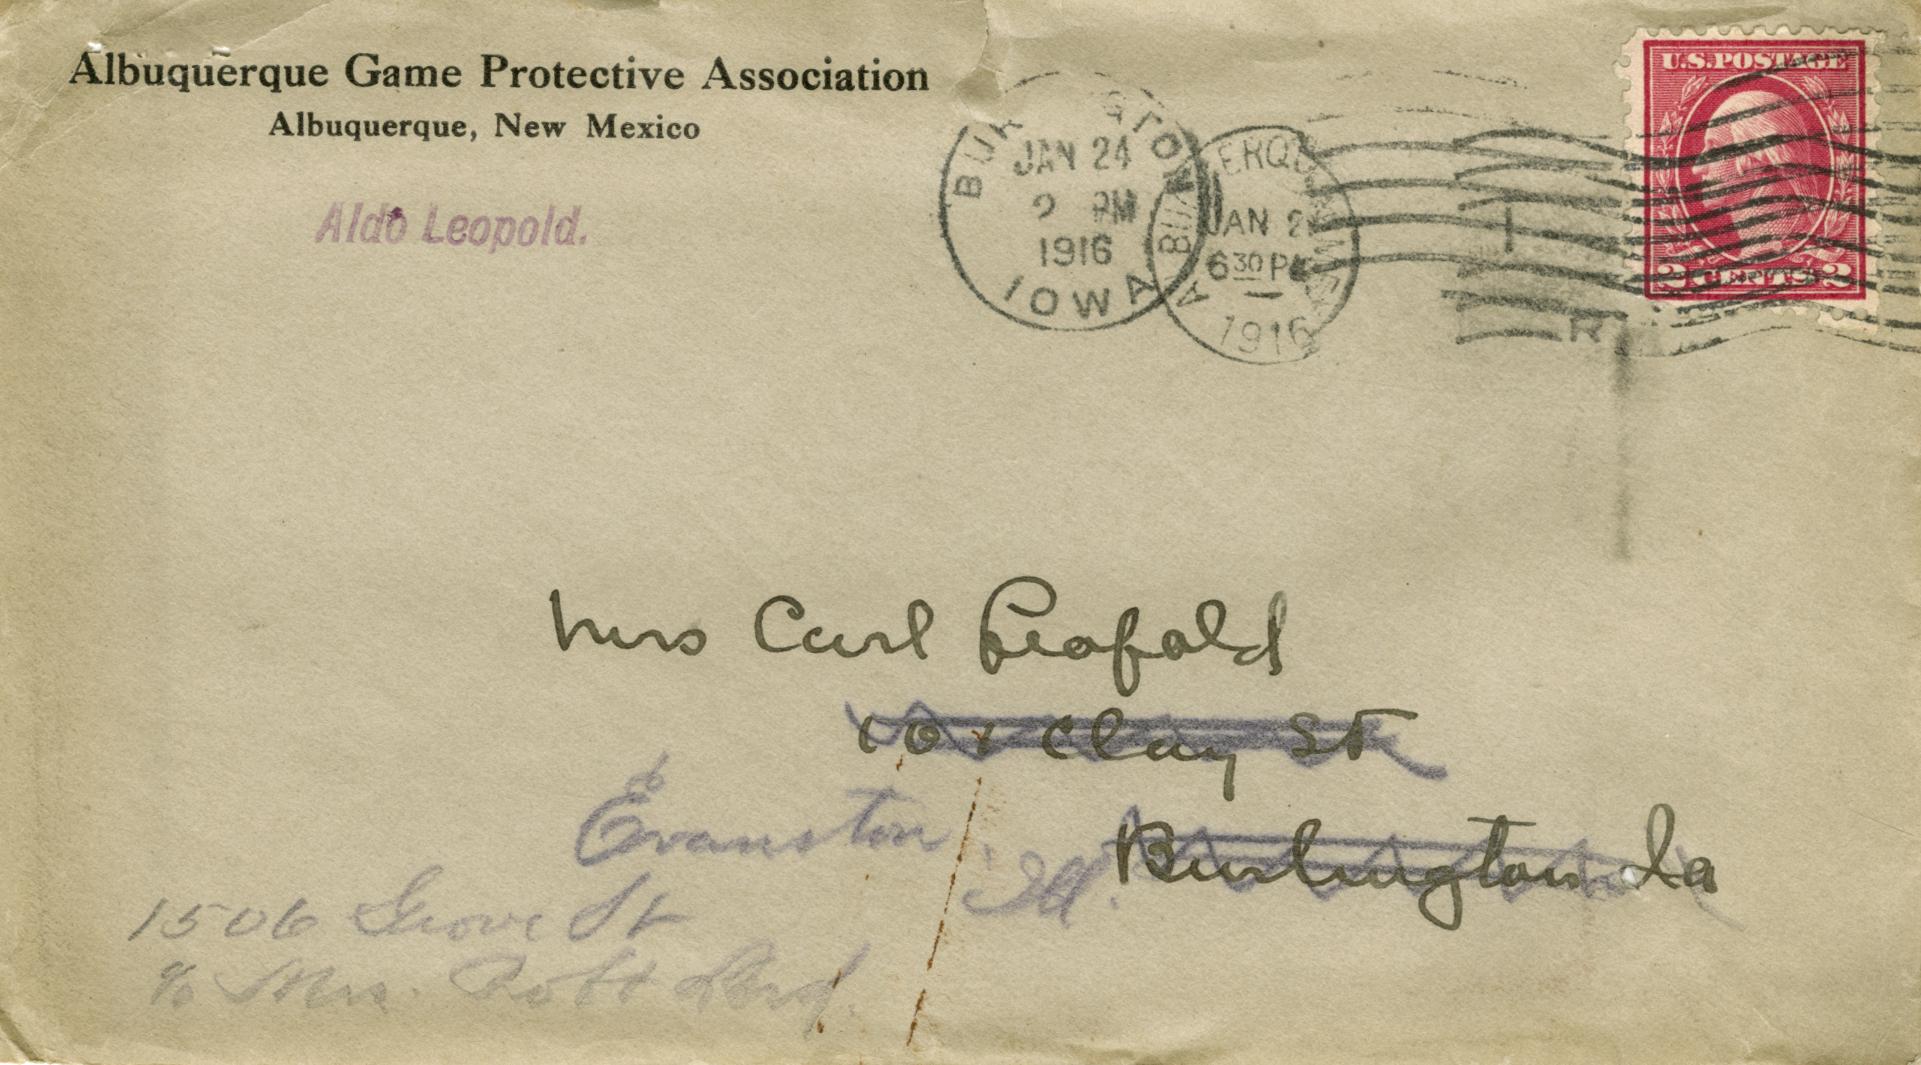 Albuquerque Game Protective Association
Albuquerque, New Mexico
Aldo Leopold.
JAN 24
2 PM
1916
IOWA
ERQU
JAN 2
6 30 PM
1916
U.S. POSTAGE
2 CENTS 2
Mrs Carl Leopold
101 Clay St
Burlington Ia
Evanston,
Ill.
1506 Grove St
c/o Mrs. Robt Lord.